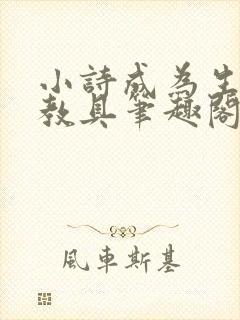 小詩成為生
教具筆趣閣
風車斯基